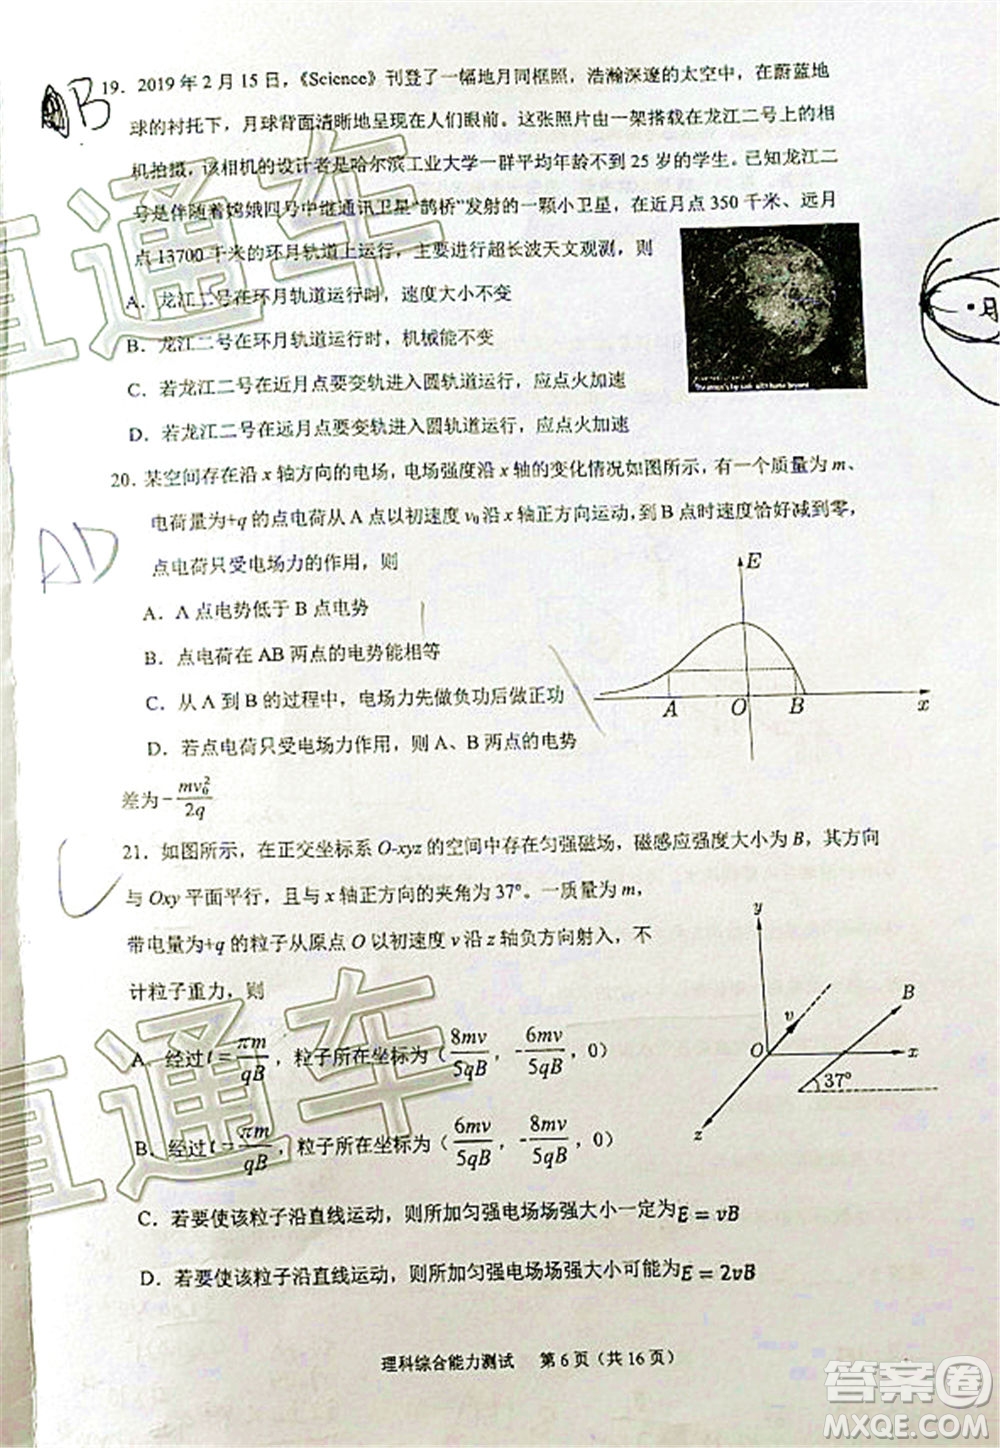 B
19．2019 年 2 月 15 日，《Science》刊登了一幅地月同框照，浩瀚深邃的太空中，在蔚蓝地
球的衬托下，月球背面清晰地呈现在人们眼前。这张照片由一架搭载在龙江二号上的相
机拍摄，该相机的设计者是哈尔滨工业大学一群平均年龄不到 25 岁的学生。已知龙江二
号是伴随着嫦娥四号中继通讯卫星“鹊桥”发射的一颗小卫星，在近月点 350 千米、远月
点 13700 千米的环月轨道上运行，主要进行超长波天文观测，则
A．龙江二号在环月轨道运行时，速度大小不变
B．龙江二号在环月轨道运行时，机械能不变
C．若龙江二号在近月点要变轨进入圆轨道运行，应点火加速
D．若龙江二号在远月点要变轨进入圆轨道运行，应点火加速
月
AD
20．某空间存在沿 x 轴方向的电场，电场强度沿 x 轴的变化情况如图所示，有一个质量为 m、
电荷量为+q 的点电荷从 A 点以初速度 v₀ 沿 x 轴正方向运动，到 B 点时速度恰好减到零，
点电荷只受电场力的作用，则
A．A 点电势低于 B 点电势
B．点电荷在 AB 两点的电势能相等
C．从 A 到 B 的过程中，电场力先做负功后做正功
D．若点电荷只受电场力作用，则 A、B 两点的电势
差为 -mv₀²/2q
E
A O B x
C
21．如图所示，在正交坐标系 O-xyz 的空间中存在匀强磁场，磁感应强度大小为 B，其方向
与 Oxy 平面平行，且与 x 轴正方向的夹角为 37°。一质量为 m，
带电量为+q 的粒子从原点 O 以初速度 v 沿 z 轴负方向射入，不
计粒子重力，则
A．经过 t = πm/qB，粒子所在坐标为（8mv/5qB，-6mv/5qB，0）
B．经过 t = πm/qB，粒子所在坐标为（6mv/5qB，-8mv/5qB，0）
C．若要使该粒子沿直线运动，则所加匀强电场场强大小一定为 E = vB
D．若要使该粒子沿直线运动，则所加匀强电场场强大小可能为 E = 2vB
y
B
v
O x
37°
z
理科综合能力测试 第 6 页（共 16 页）
直通车
直通车
答案圈
MXQE.COM